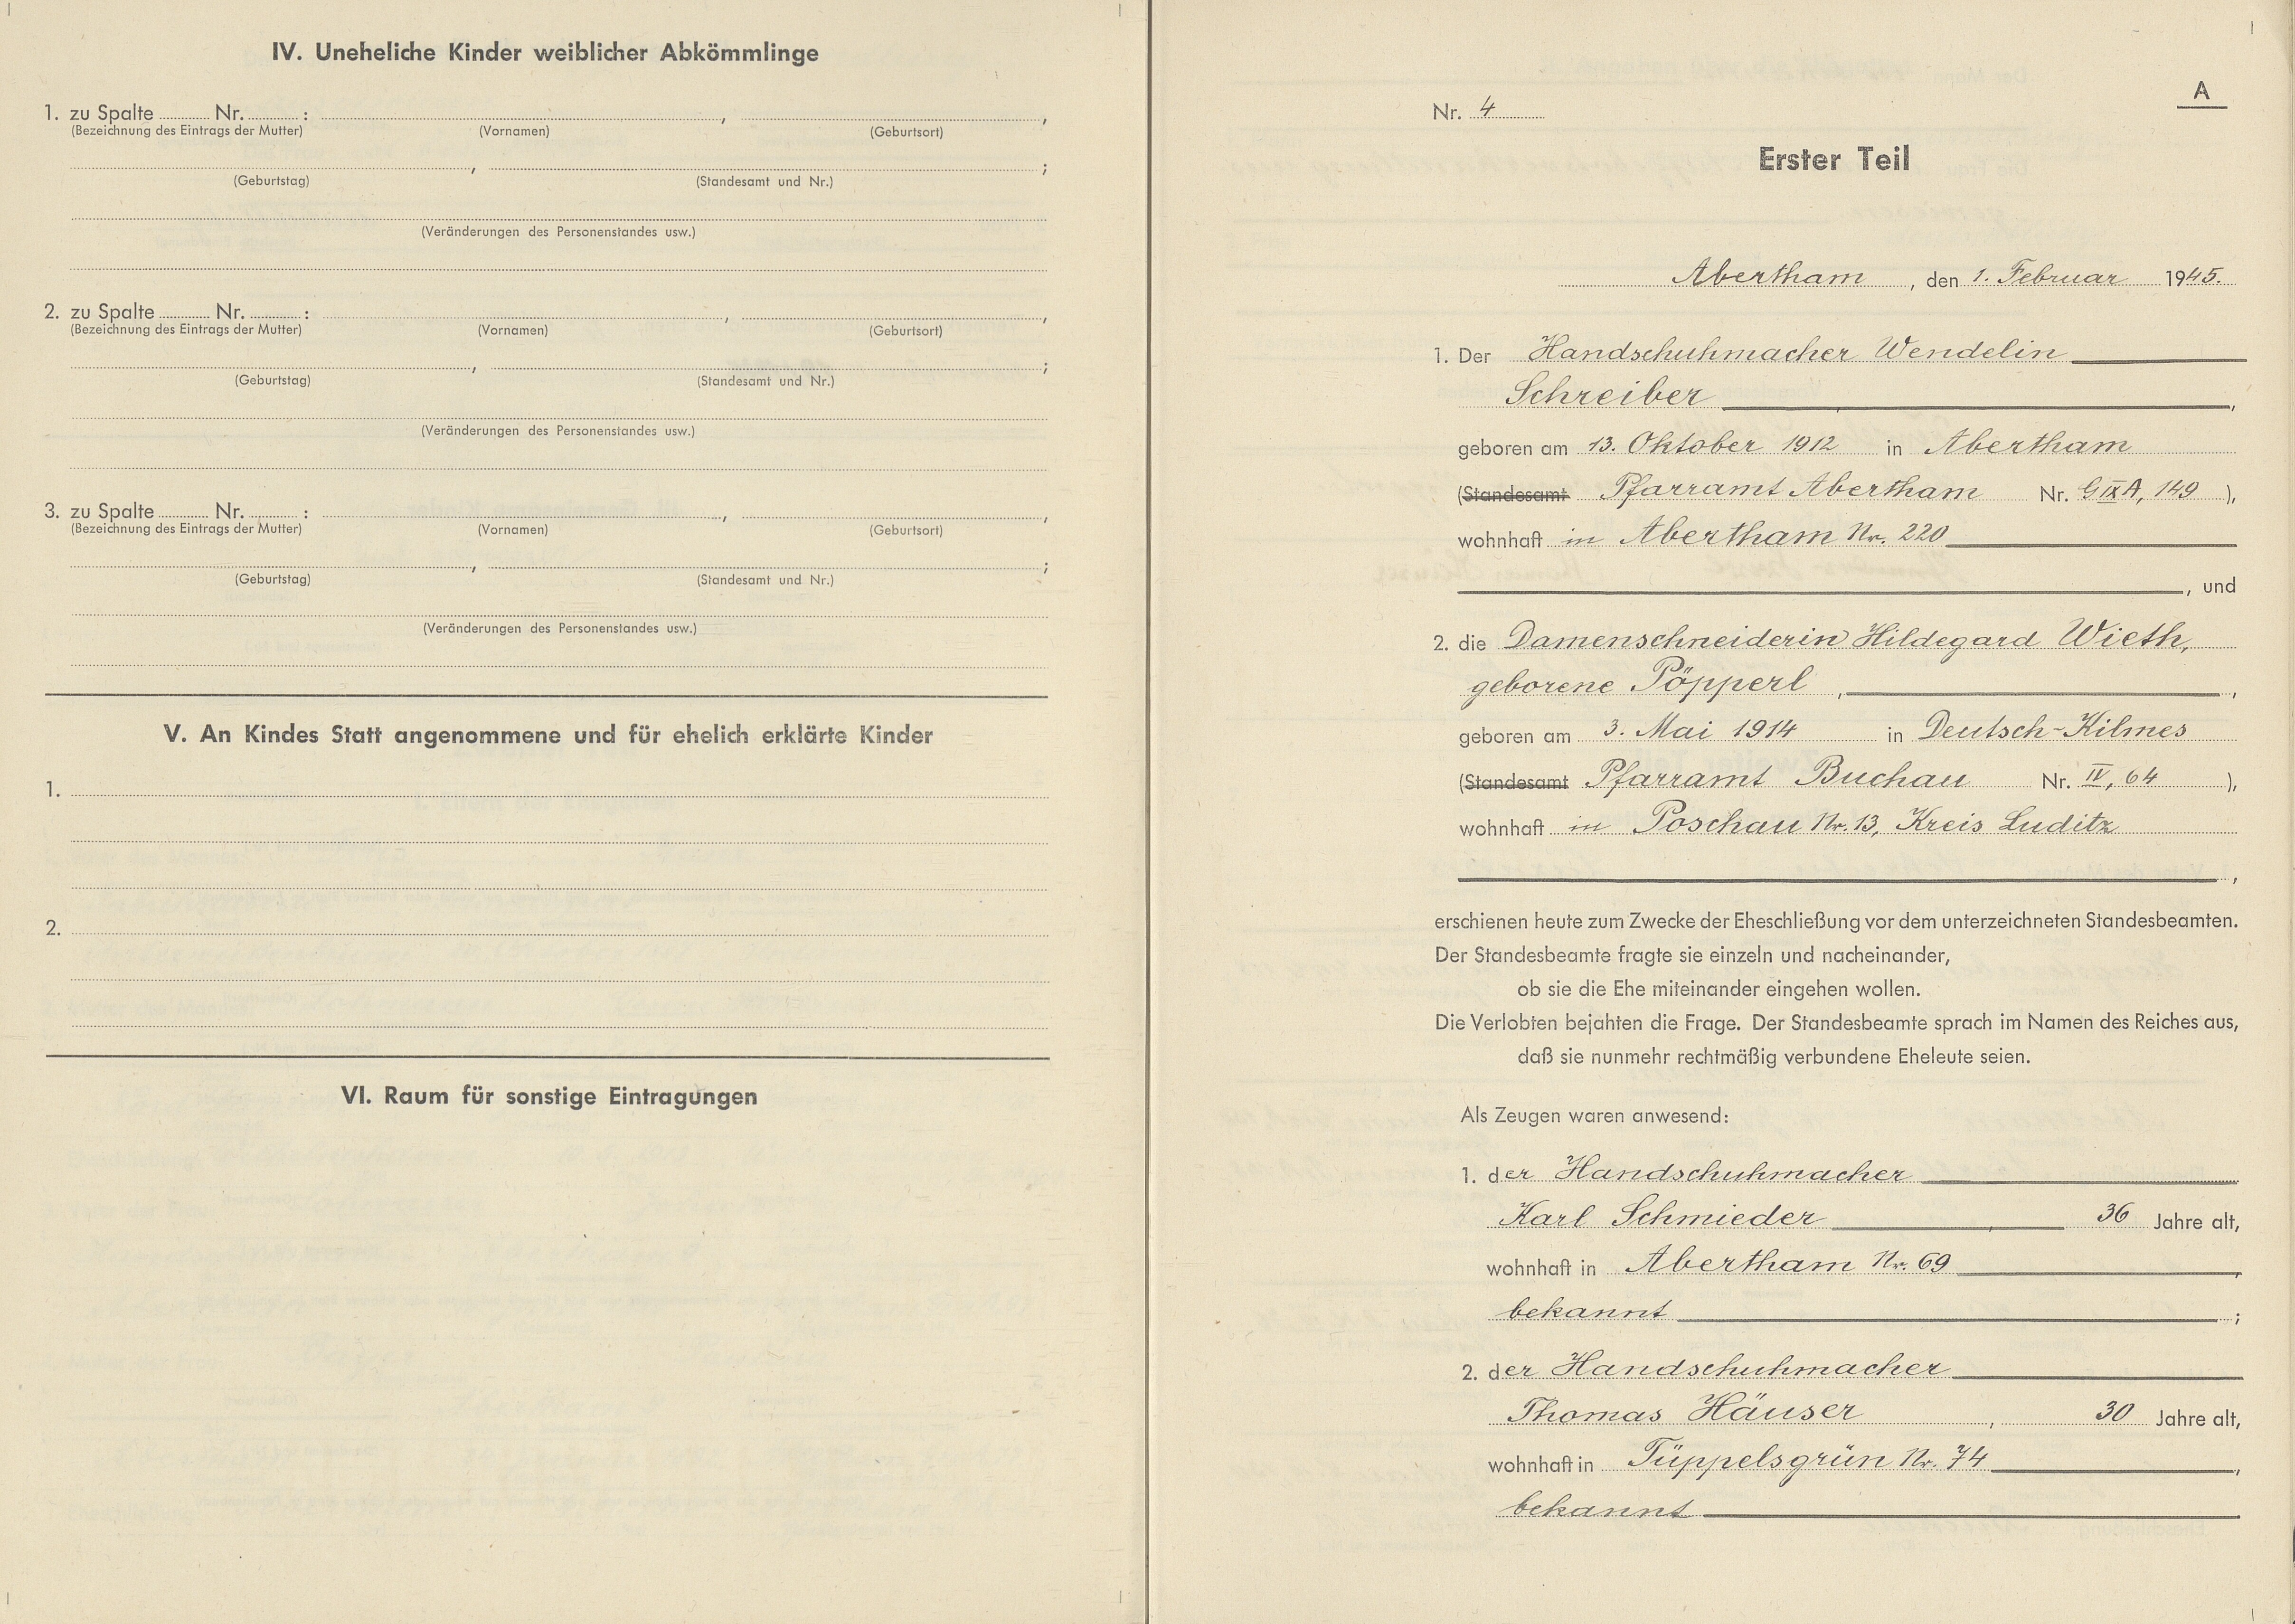 IV. Uneheliche Kinder weiblicher Abkömmlinge
1. zu Spalte ........ Nr. ........ : ........, ........,
(Bezeichnung des Eintrags der Mutter) (Vornamen) (Geburtsort)
........, ........;
(Geburtstag) (Standesamt und Nr.)
(Veränderungen des Personenstandes usw.)
2. zu Spalte ........ Nr. ........ : ........, ........,
(Bezeichnung des Eintrags der Mutter) (Vornamen) (Geburtsort)
........, ........;
(Geburtstag) (Standesamt und Nr.)
(Veränderungen des Personenstandes usw.)
3. zu Spalte ........ Nr. ........ : ........, ........,
(Bezeichnung des Eintrags der Mutter) (Vornamen) (Geburtsort)
........, ........;
(Geburtstag) (Standesamt und Nr.)
(Veränderungen des Personenstandes usw.)
V. An Kindes Statt angenommene und für ehelich erklärte Kinder
1.
2.
VI. Raum für sonstige Eintragungen
A
Nr. 4
Erster Teil
Abertham, den 1. Februar 1945.
1. Der Handschuhmacher Wendelin
Schreiber,
geboren am 13. Oktober 1912 in Abertham
(Standesamt Pfarramt Abertham Nr. G IX A, 149),
wohnhaft in Abertham Nr. 220
, und
2. die Damenschneiderin Hildegard Wieth,
geborene Pöpperl,
geboren am 3. Mai 1914 in Deutsch-Kilmes
(Standesamt Pfarramt Buchau Nr. IV, 64),
wohnhaft in Poschau Nr. 13, Kreis Luditz
,
erschienen heute zum Zwecke der Eheschließung vor dem unterzeichneten Standesbeamten.
Der Standesbeamte fragte sie einzeln und nacheinander,
ob sie die Ehe miteinander eingehen wollen.
Die Verlobten bejahten die Frage. Der Standesbeamte sprach im Namen des Reiches aus,
daß sie nunmehr rechtmäßig verbundene Eheleute seien.
Als Zeugen waren anwesend:
1. der Handschuhmacher
Karl Schmieder, 36 Jahre alt,
wohnhaft in Abertham Nr. 69,
bekannt;
2. der Handschuhmacher
Thomas Häuser, 30 Jahre alt,
wohnhaft in Tüppelsgrün Nr. 74,
bekannt